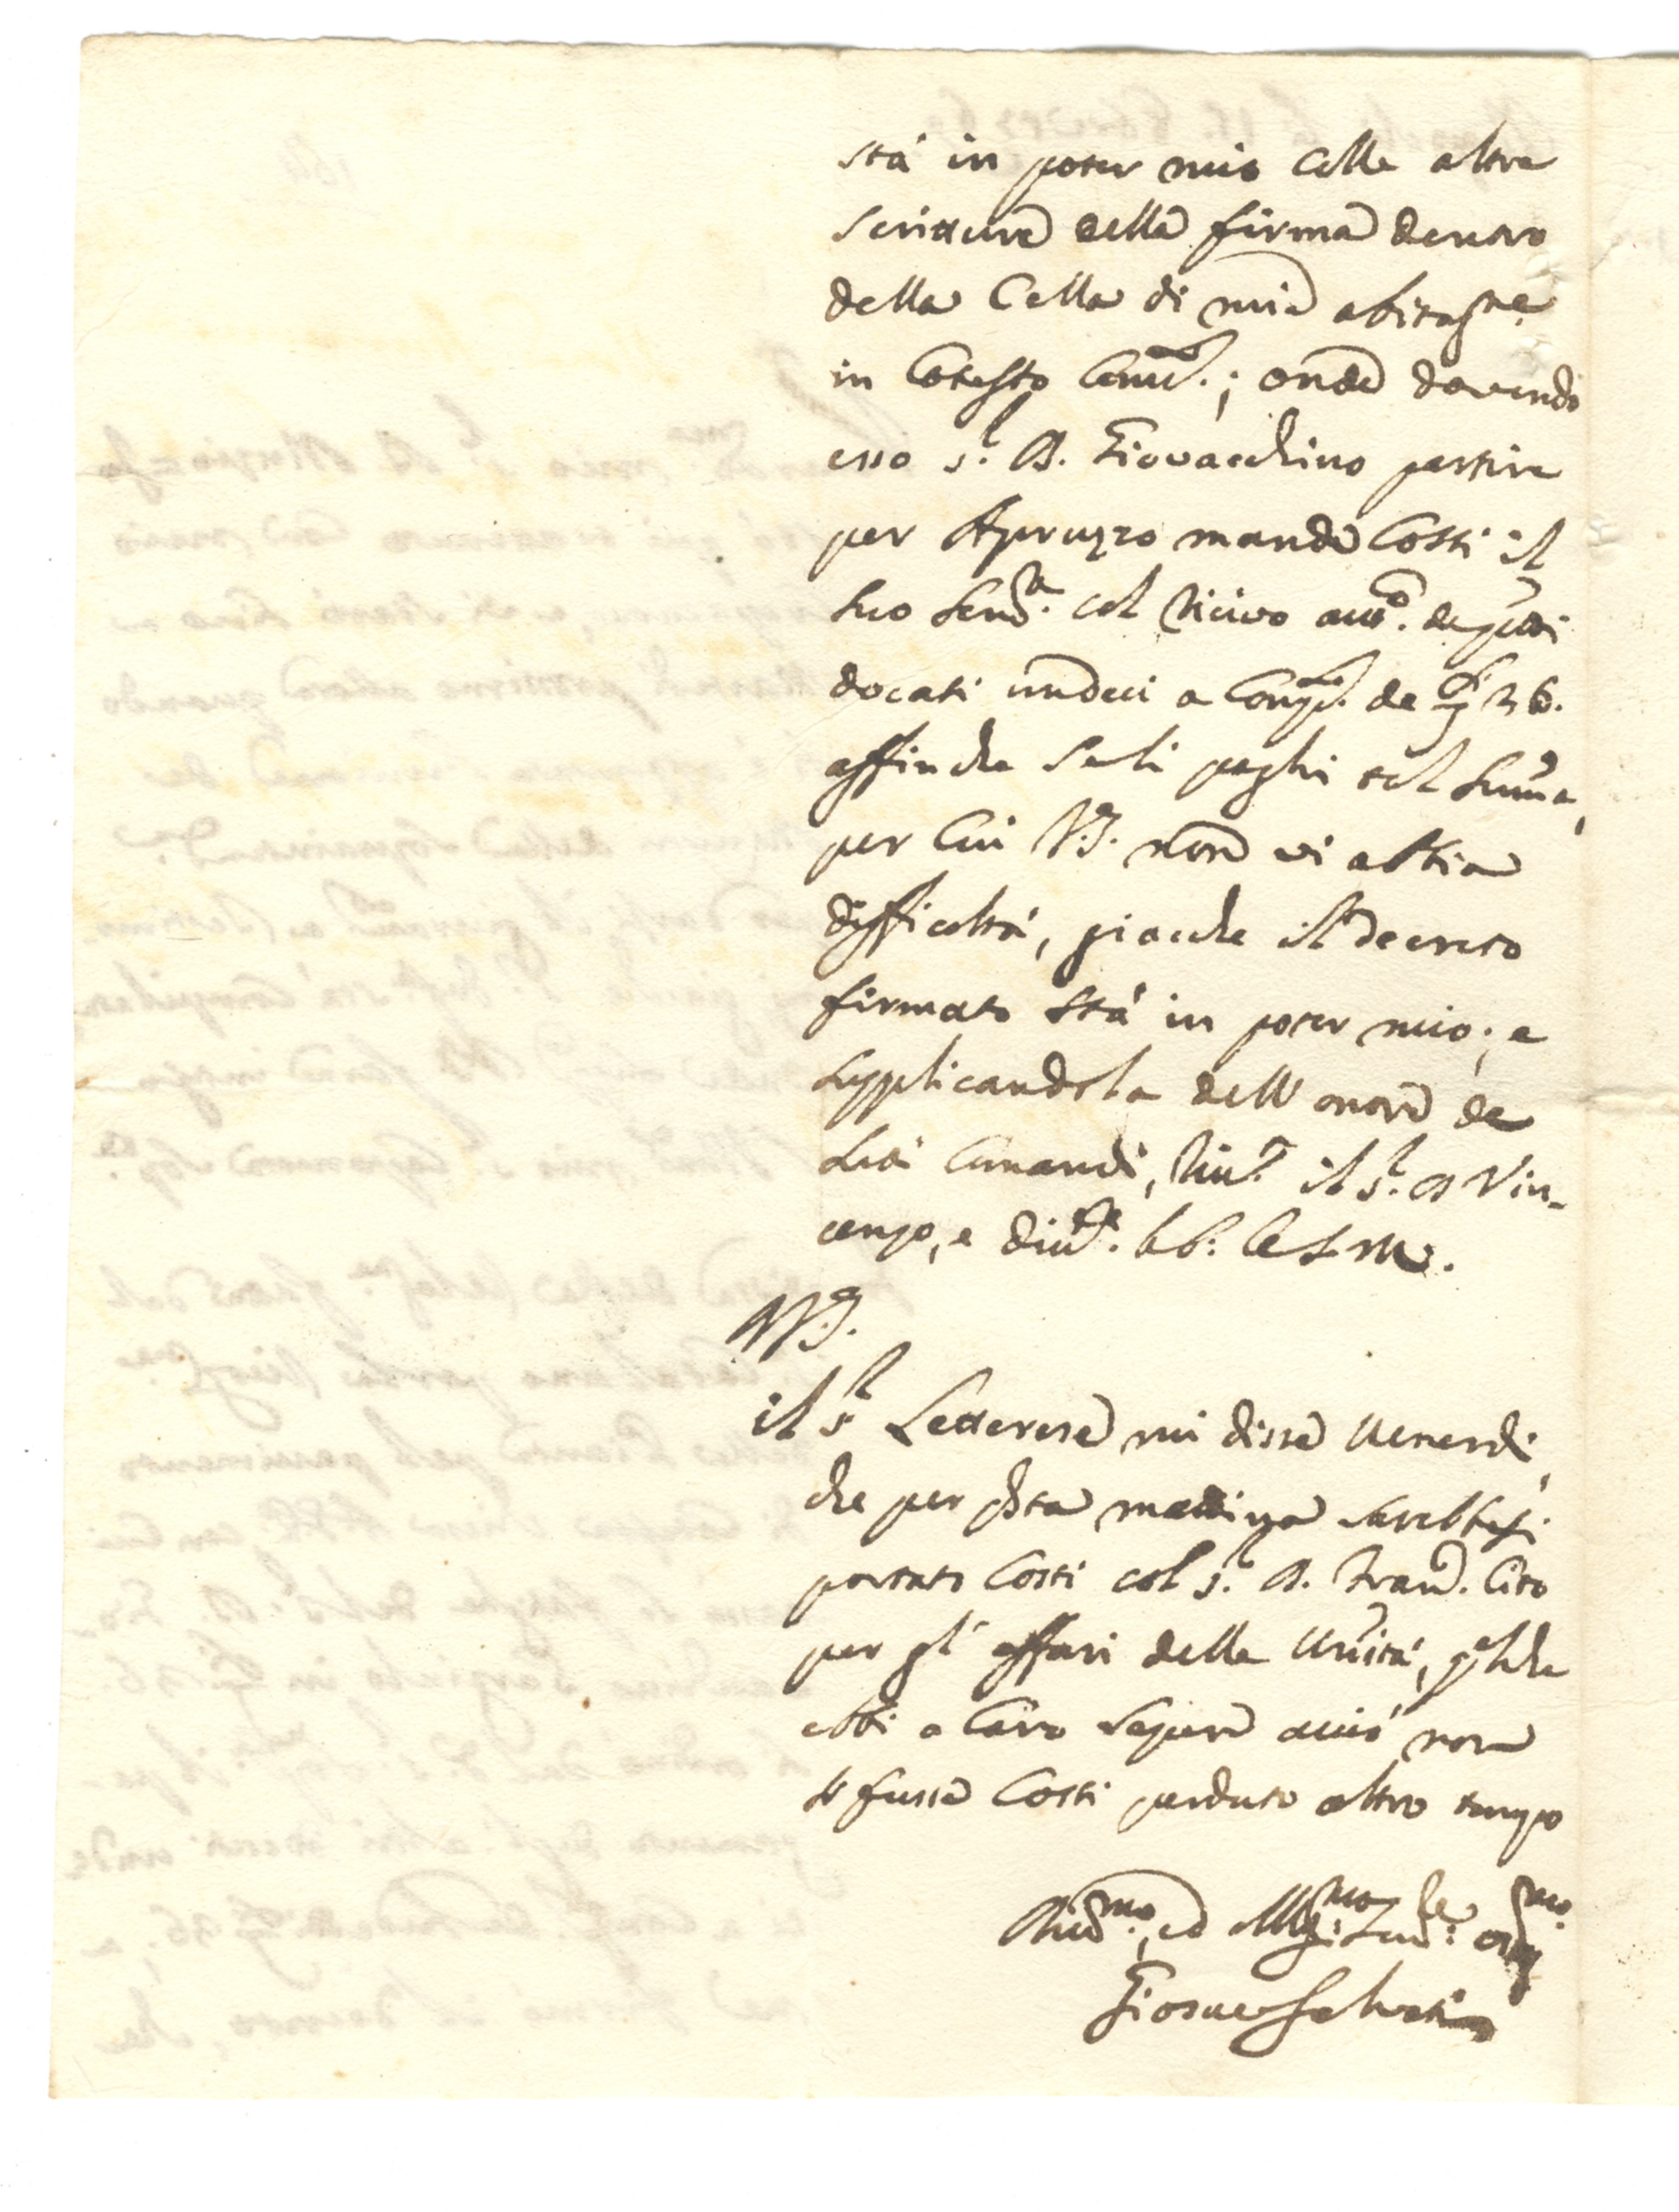 stà in poter mio colle altre
scritture della firma dentro
della Cella di mia abitaz.ne
in Cotesto Conv.; onde dovendo
esso s.r D. Giovacchino partire
per Apruzzo manda Costì il
suo col ricivo
docati undeci a de 36.
affinche se li paghi tal summa,
per cui V.S. non vi abbia
difficoltà, giacche il decreto
firmato stà in poter mio; e
supplicandola dell onore de
suoi Comandi, riv. il s.r D Vin-
cenzo, e
V.S.
il s.r Letterese mi disse Venerdi,
che per q.sta mattina sarebbesi
portato Costì col s.r D. Fran. Cito
per gl' affari della Uni.tà,
ebbi a Caro sapere acciò non
si fusse Costì perduto altro tempo
ed
Giosue Salvati